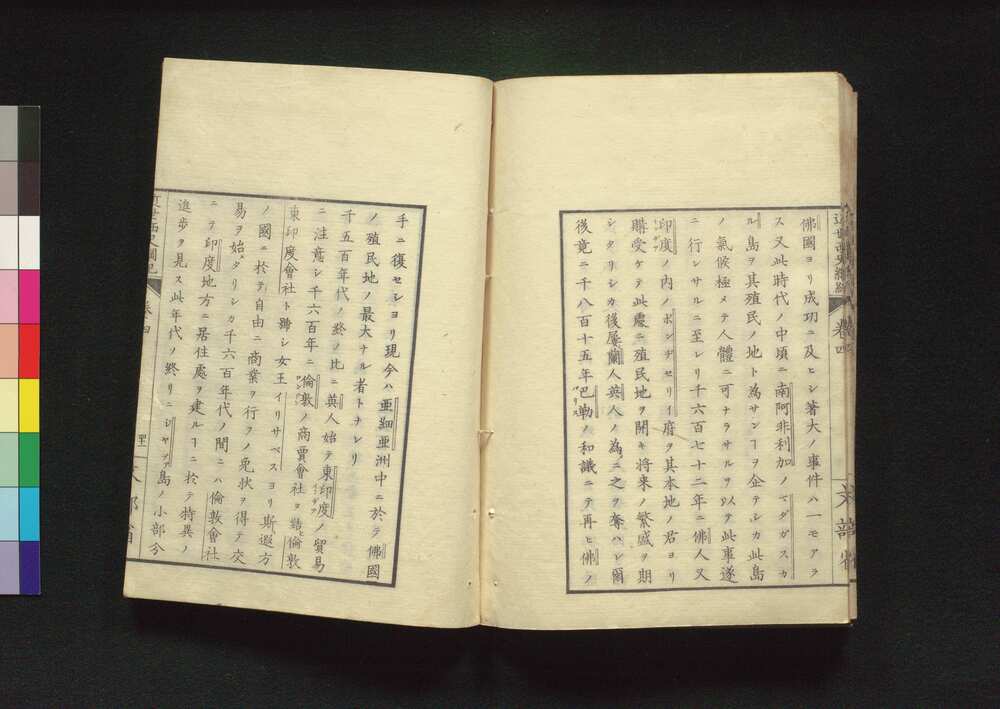 佛國ヨリ成功ニ及ヒシ著大ノ事件ハ一モアラ
ス又此時代ノ中頃ニ南阿非利加ノマダガスカ
ル島ヲ其殖民ノ地ト為サンヿヲ企テシカ此島
ノ氣候極メテ人體ニ可ナラサルヲ以テ此事遂
ニ行ンサルニ至レリ千六百七十二年ニ佛人又
印度ノ内ノポンヂセリイ府ヲ其本地ノ君ヨリ
購受ケテ此處ニ殖民地ヲ開キ将来ノ繁盛ヲ期
シタリシカ後屡蘭人英人ノ為ニ之ヲ奪ハレ爾
後竟ニ千八百十五年巴勒ノ和議ニテ再ヒ佛ノ
手ニ復セシヨリ現今ハ亜細亜洲中ニ於テ佛國
ノ殖民地ノ最大ナル者トナレリ
千五百年代ノ終ノ比ニ英人始テ東印度ノ貿易
ニ注意シ千六百年ニ倫敦ノ商賈會社ヲ結ヒ倫敦
東印度會社ト號シ女王イリサベスヨリ斯遐方
ノ國ニ於テ自由ニ商業ヲ行フノ免状ヲ得テ交
易ヲ始メタリシカ千六百年代ノ間ニハ倫敦會社
ニテ印度地方ニ居住處ヲ建ルヿニ於テ特異ノ
進歩ヲ見ス此年代ノ終リニシャヷア島ノ小部分
卷四